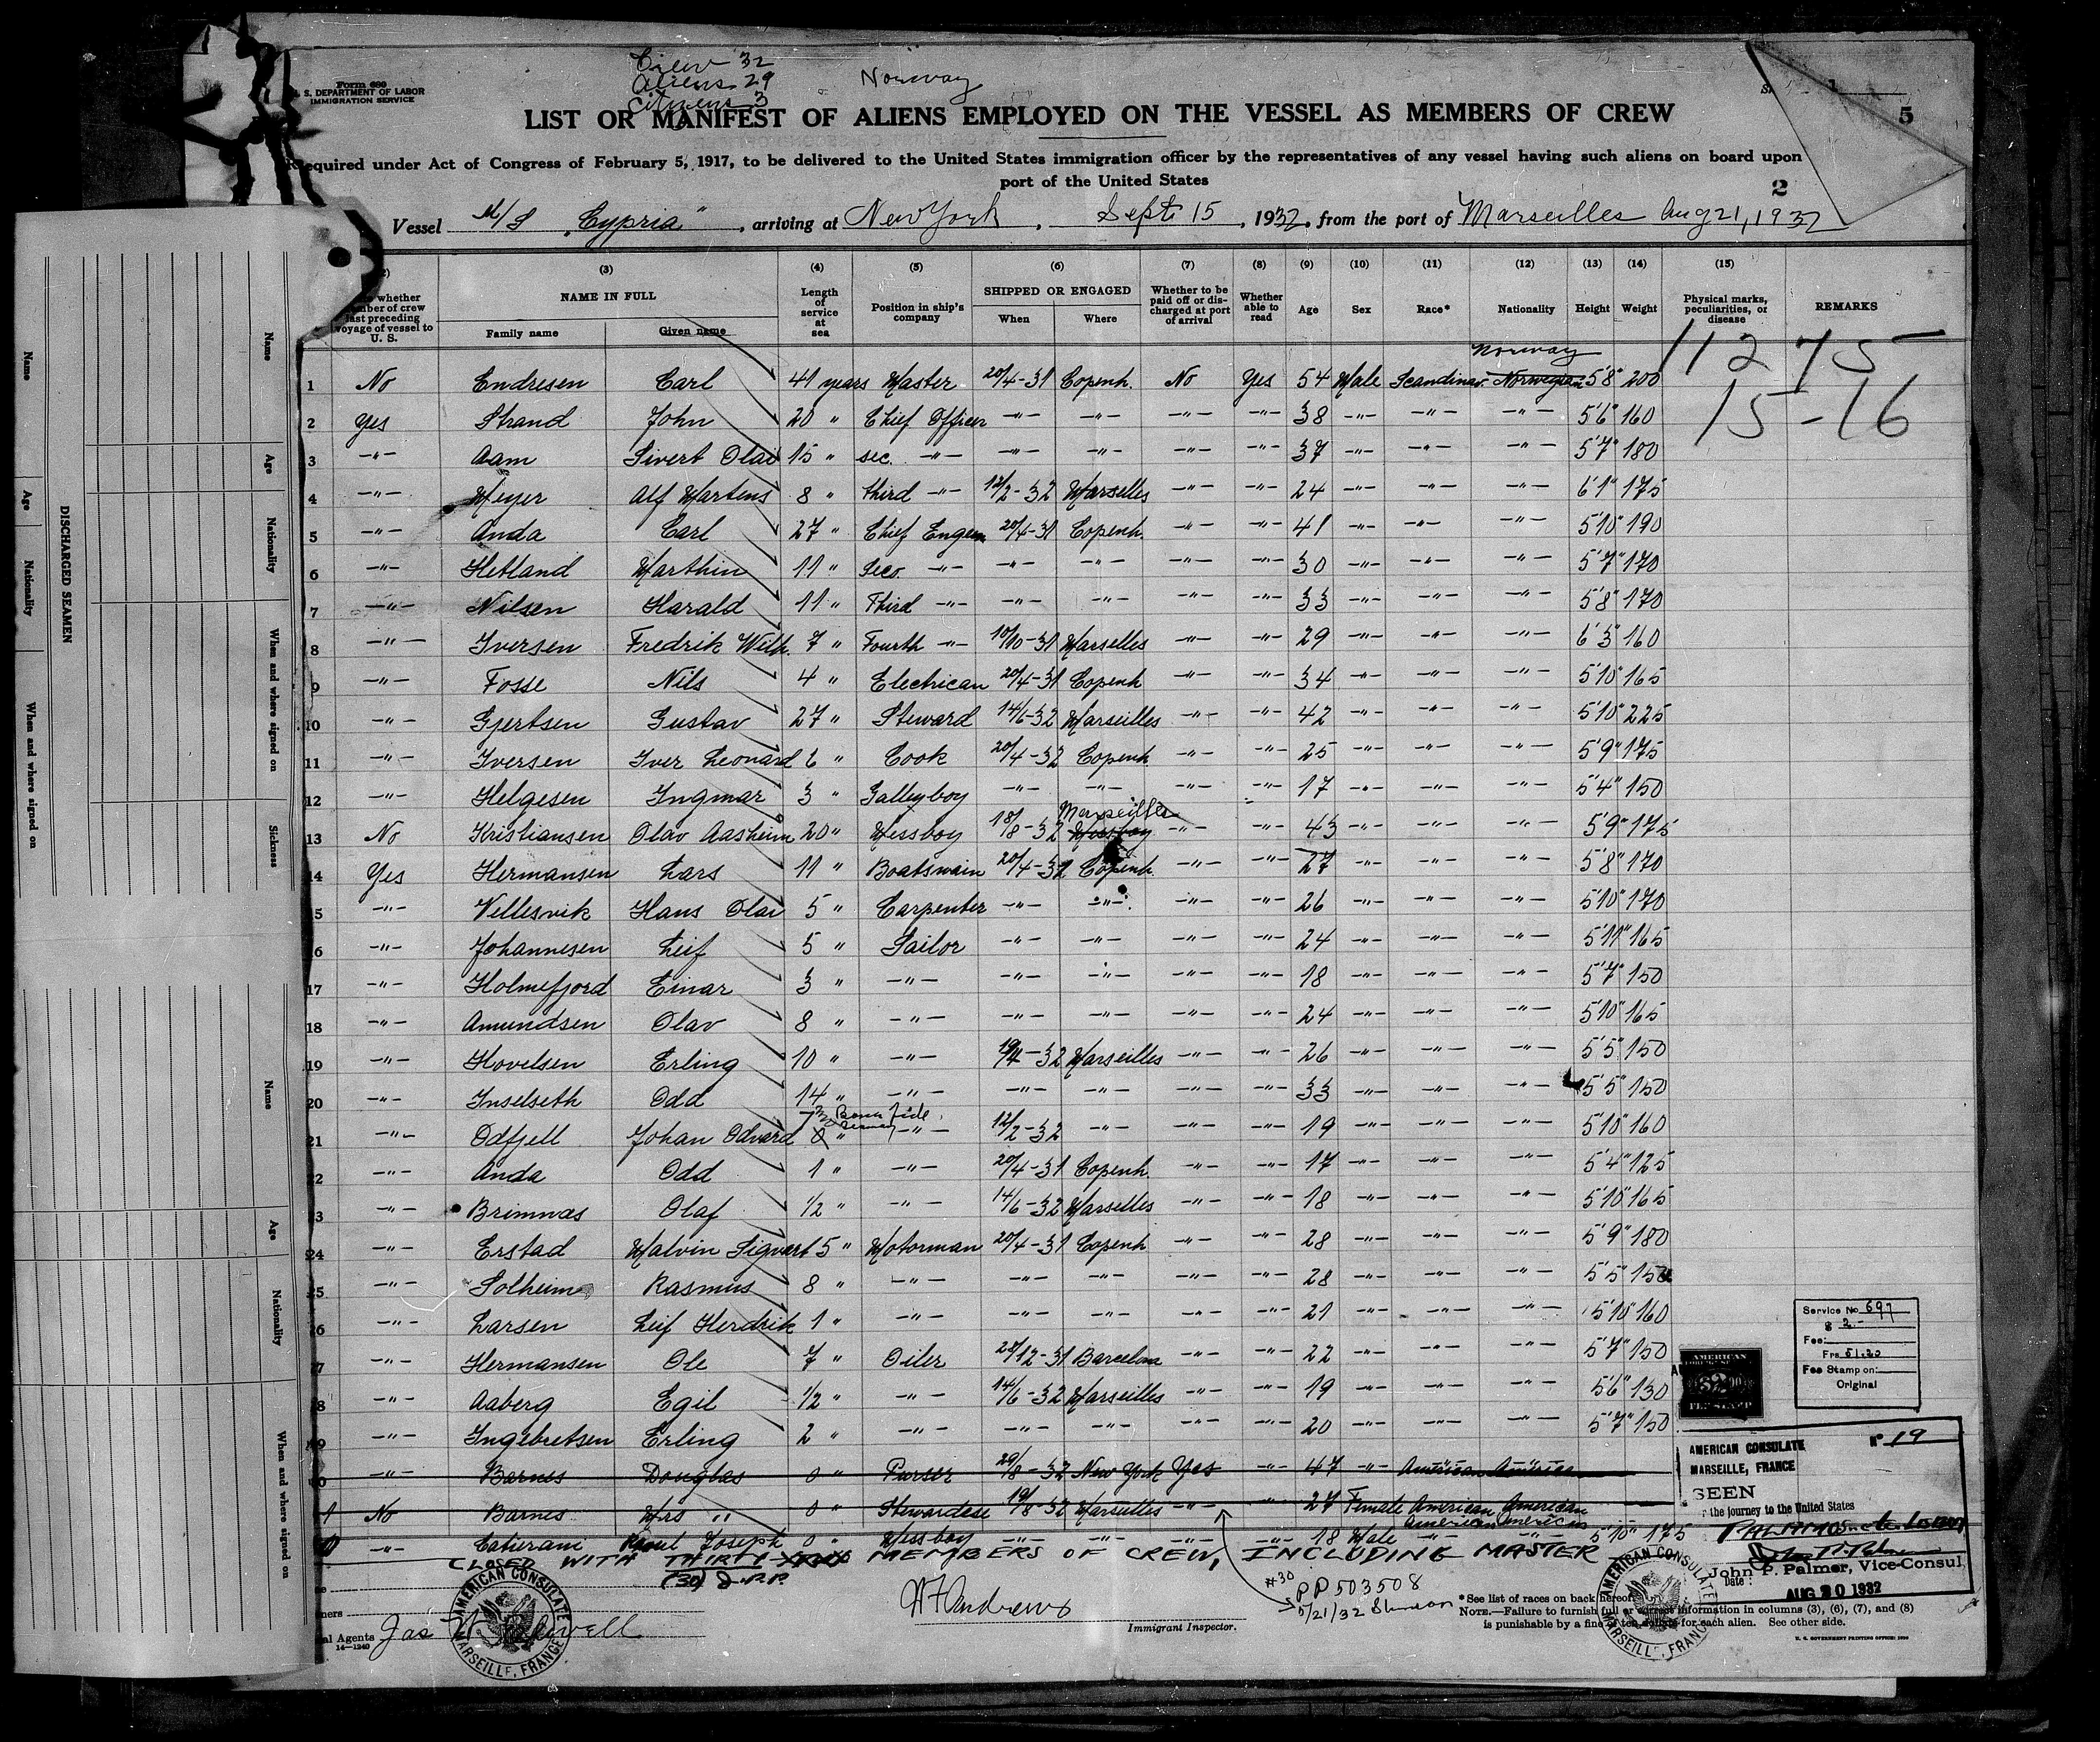 Crew 32
Aliens 29
Citizens 3
Norway
Form 680
U. S. DEPARTMENT OF LABOR
IMMIGRATION SERVICE
1
5
LIST OR MANIFEST OF ALIENS EMPLOYED ON THE VESSEL AS MEMBERS OF CREW
Required under Act of Congress of February 5, 1917, to be delivered to the United States immigration officer by the representatives of any vessel having such aliens on board upon
port of the United States
2
Vessel M/S "Cypria" , arriving at New York , Sept 15 , 1932, from the port of Marseilles Aug 21, 1932
(3) (4) (5) (6) (7) (8) (9) (10) (11) (12) (13) (14) (15)
whether member of crew last preceding voyage of vessel to U. S.
NAME IN FULL
Family name Given name
Length of service at sea
Position in ship's company
SHIPPED OR ENGAGED
When Where
Whether to be paid off or discharged at port of arrival
Whether able to read
Age Sex Race* Nationality Height Weight
Physical marks, peculiarities, or disease
REMARKS
11275
15-16
Norway
1 No Endresen Carl 41 years Master 20/4-31 Copenh. No Yes 54 Male Scandinav. Norwegian 5'8" 200
2 Yes Strand John 20 " Chief Officer -"- -"- -"- -"- 38 -"- -"- -"- 5'6" 160
3 -"- Aam Sivert Olav 15 " sec. -"- -"- -"- -"- -"- 37 -"- -"- -"- 5'7" 180
4 -"- Meyer Alf Martens 8 " third -"- 12/2-32 Marselles -"- -"- 24 -"- -"- -"- 6'1" 175
5 -"- Anda Carl 27 " Chief Engeen 20/4-31 Copenh. -"- -"- 41 -"- -"- -"- 5'10" 190
6 -"- Hetland Marthin 11 " Seco. -"- -"- -"- -"- -"- 30 -"- -"- -"- 5'7" 170
7 -"- Nilsen Harald 11 " Third -"- -"- -"- -"- -"- 33 -"- -"- -"- 5'8" 170
8 -"- Iversen Fredrik Wilh. 7 " Fourth -"- 10/10-31 Marselles -"- -"- 29 -"- -"- -"- 6'3" 160
9 -"- Fosse Nils 4 " Electrican 20/4-31 Copenh -"- -"- 34 -"- -"- -"- 5'10" 165
10 -"- Gjertsen Gustav 27 " Steward 14/6-32 Marseilles -"- -"- 42 -"- -"- -"- 5'10" 225
11 -"- Iversen Iver Leonard 6 " Cook 20/4-32 Copenh. -"- -"- 25 -"- -"- -"- 5'9" 175
12 -"- Helgesen Ingmar 3 " Galleyboy -"- -"- -"- 17 -"- -"- 5'4" 150
Marseilles
13 No Kristiansen Olav Aasheim 20 " Messboy 18/8-32 Messboy -"- -"- 43 -"- -"- -"- 5'9" 175
14 Yes Hermansen Lars 11 " Boatswain 20/4-32 Copenh. -"- -"- 27 -"- -"- -"- 5'8" 170
15 -"- Vellesvik Hans Olav 5 " Carpenter -"- -"- -"- -"- 26 -"- -"- -"- 5'10" 170
16 -"- Johannesen Leif 5 " Sailor -"- -"- -"- -"- 24 -"- -"- -"- 5'11" 165
17 -"- Holmefjord Einar 3 " -"- -"- -"- -"- -"- 18 -"- -"- -"- 5'7" 150
18 -"- Amundsen Olav 8 " -"- -"- -"- -"- -"- 24 -"- -"- -"- 5'10" 165
19 -"- Hovelsen Erling 10 " -"- 19/4-32 Marseilles -"- -"- 26 -"- -"- -"- 5'5" 150
20 -"- Inselseth Odd 14 " -"- -"- -"- -"- -"- 33 -"- -"- -"- 5'5" 150
Bona fide
21 -"- Odfjell Johan Odvard -"- 12/2-32 -"- -"- -"- 19 -"- -"- -"- 5'10" 160
22 -"- Anda Odd 1 " -"- 20/4-31 Copenh. -"- -"- 17 -"- -"- -"- 5'4" 125
23 -"- Brimnæs Olaf 1/2 " -"- 14/6-32 Marselles -"- -"- 18 -"- -"- -"- 5'10" 165
24 -"- Erstad Malvin Sigvart 5 " Motorman 20/4-31 Copenh -"- -"- 28 -"- -"- -"- 5'9" 180
25 -"- Solheim Rasmus 8 " -"- -"- -"- -"- -"- 28 -"- -"- -"- 5'5" 150
26 -"- Larsen Leif Hendrik 1 " -"- -"- -"- -"- -"- 21 -"- -"- -"- 5'10" 160
27 -"- Hermansen Ole 7 " Oiler 28/12-31 Barcelona -"- -"- 22 -"- -"- -"- 5'7" 150
28 -"- Aaberg Egil 1/2 " -"- 14/6-32 Marseilles -"- -"- 19 -"- -"- -"- 5'6" 130
29 -"- Ingebretsen Erling 2 " -"- -"- -"- -"- -"- 20 -"- -"- -"- 5'7" 150
-"- Barnes Douglas 0 " Purser 29/8-32 New York Yes -"- 47 -"- American American
No Barnes Mrs " 0 " Stewardese 19/8-32 Marseilles -"- -"- 27 Female American American
American American
-"- Catierani Raoul Joseph 0 " Messboy -"- -"- -"- -"- 18 Male -"- -"- 5'10" 175
CLOSED WITH THIRTY MEMBERS OF CREW, INCLUDING MASTER
(30) J.P.P.
#30
PP 503508
5/21/32
AMERICAN CONSULATE
MARSEILLE, FRANCE
Jas W.
al Agents
14-1240
Immigrant Inspector.
Service No 697
$ 2.-
Fee:
Frs 51.20
Fee Stamp on:
Original
AMERICAN
FEE STAMP
AMERICAN CONSULATE No 19
MARSEILLE, FRANCE
SEEN
r the journey to the United States
John P. Palmer, Vice-Consul
Date: AUG 20 1932
AMERICAN CONSULATE
MARSEILLE, FRANCE
*See list of races on back hereof.
NOTE.—Failure to furnish full or correct information in columns (3), (6), (7), and (8)
is punishable by a fine of ten dollars for each alien. See other side.
U. S. GOVERNMENT PRINTING OFFICE: 1930
DISCHARGED SEAMEN
Name
Age
Nationality
When and where signed on
Name
Age
Nationality
When and where signed on
Sickness
Name
Age
Nationality
When and where signed on